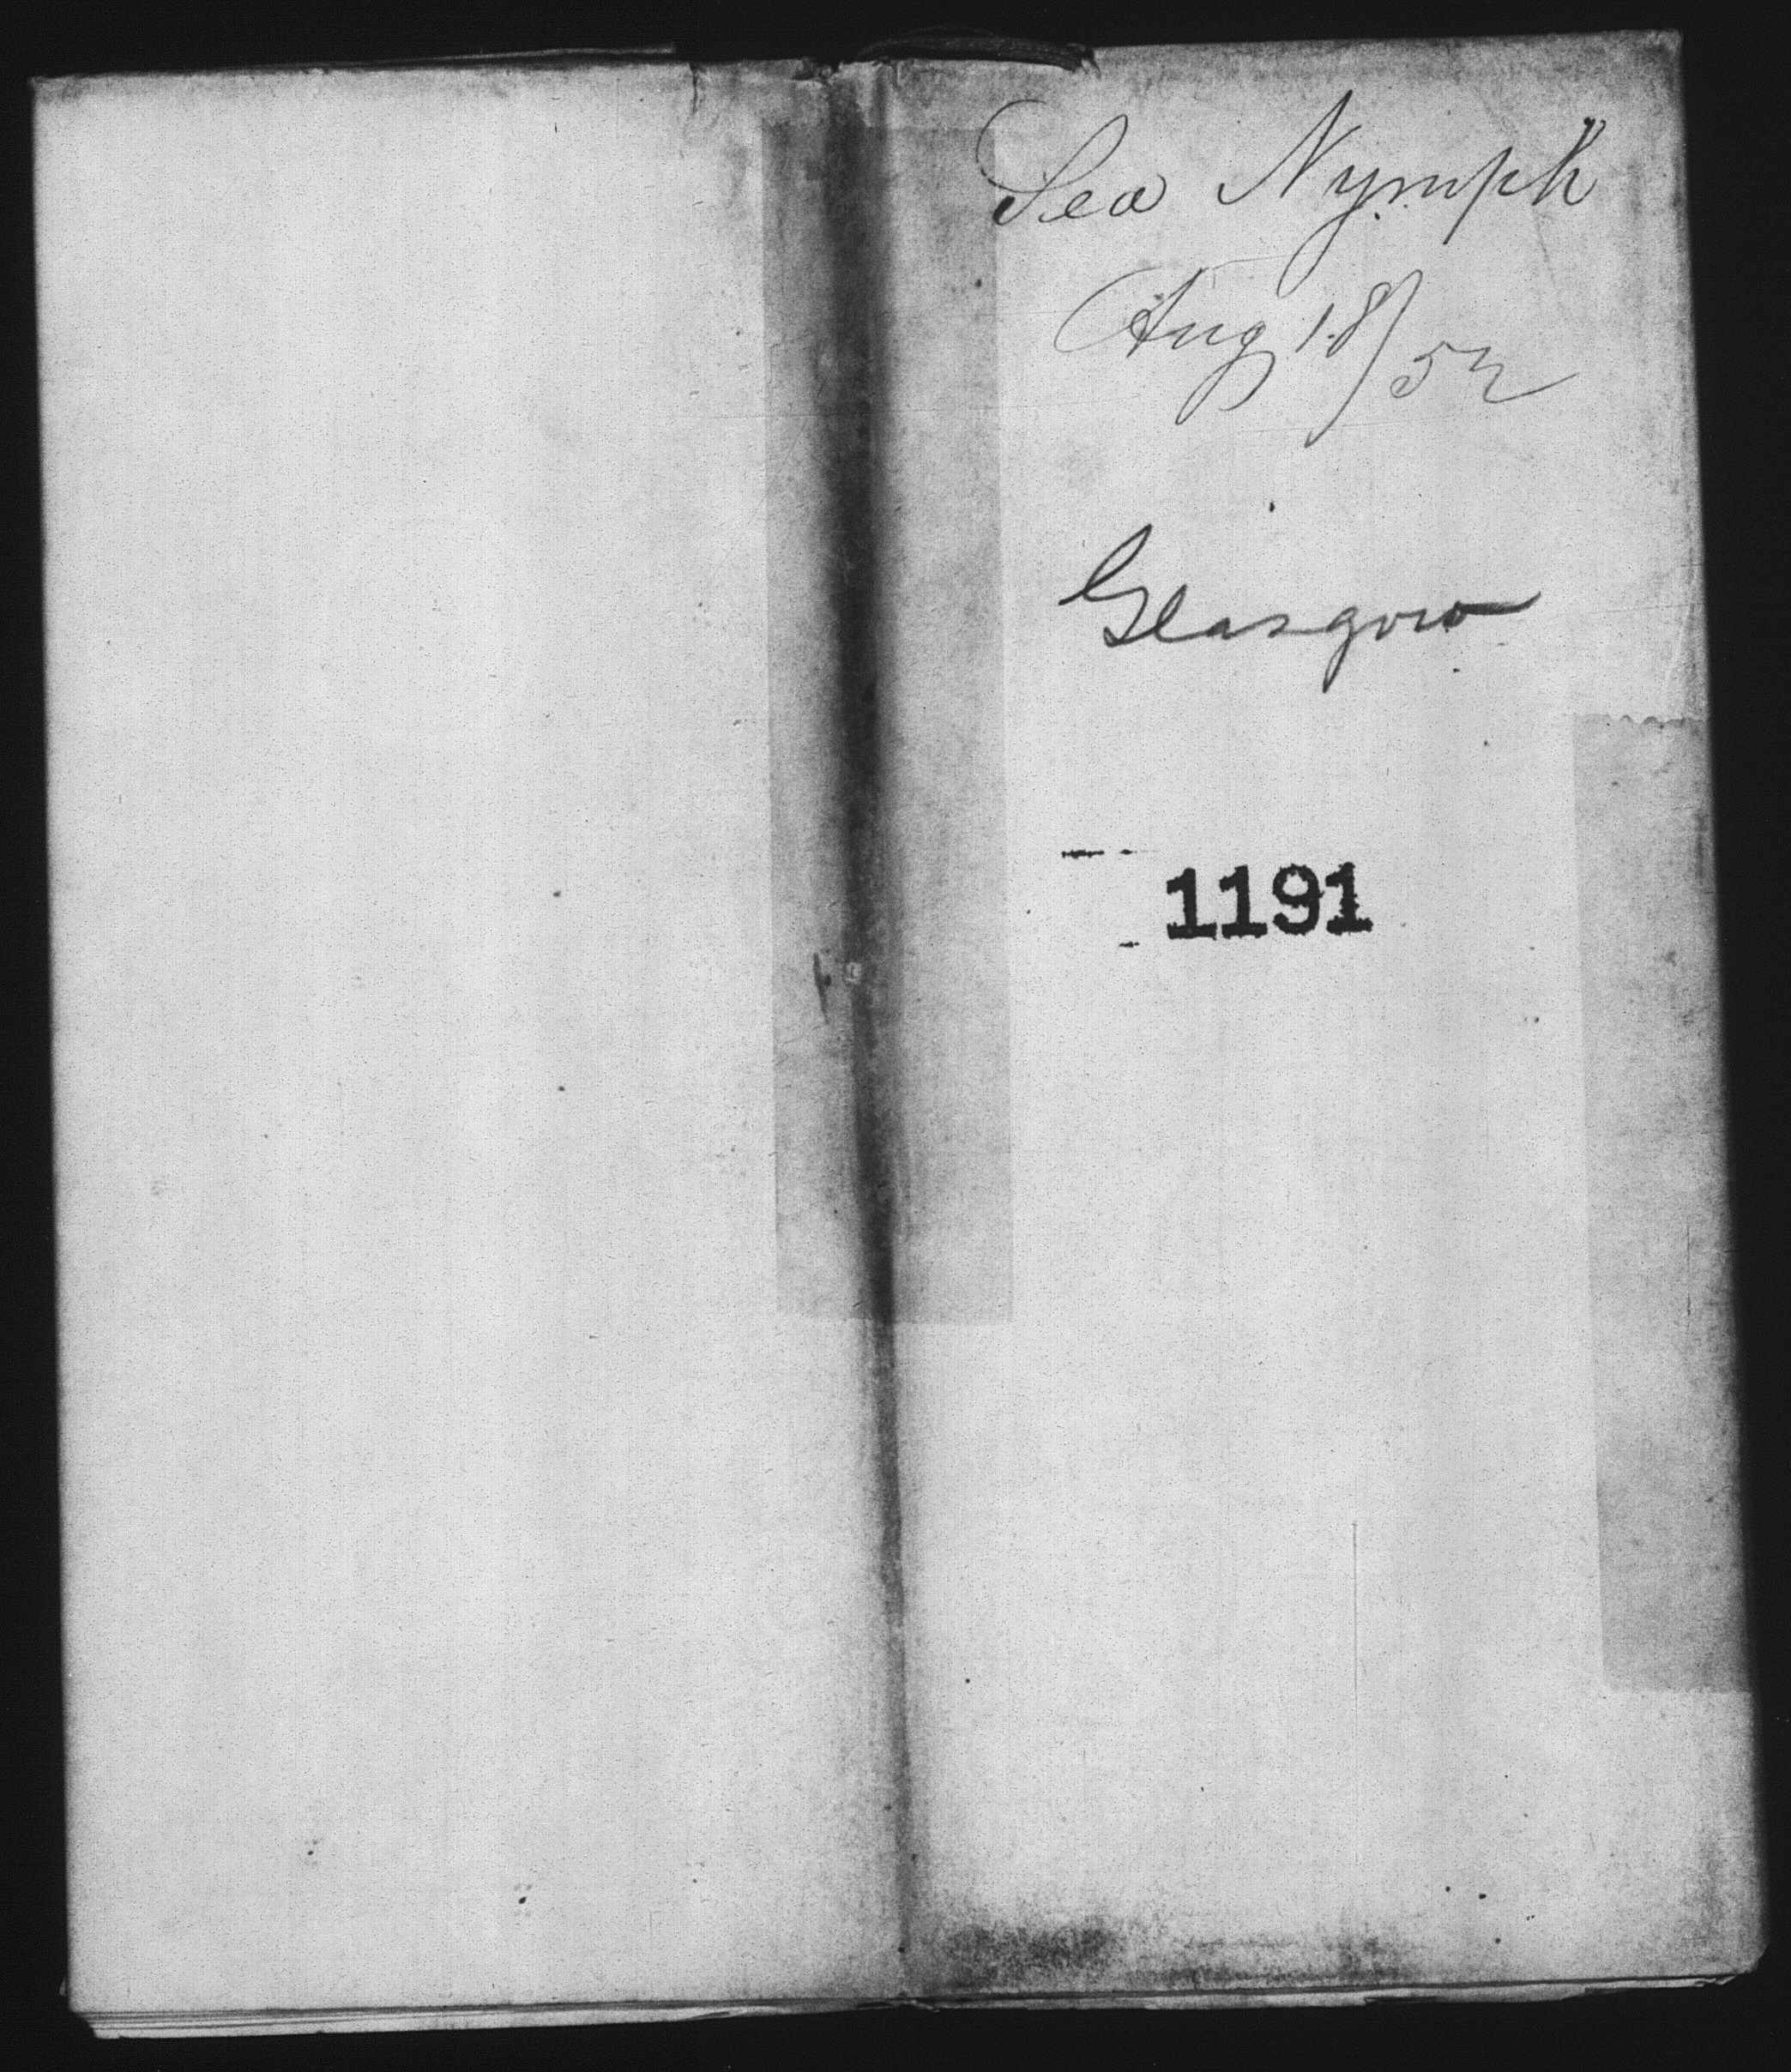 Sea Nymph
Aug 18/52
Glasgow
1191